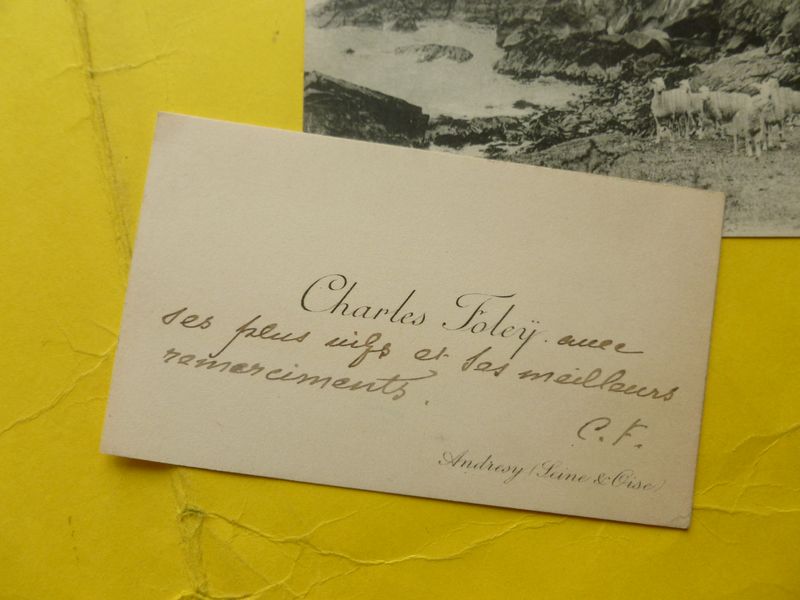 Charles Foleÿ. avec
ses plus vifs et ses meilleurs
remerciments.
C. F.
Andresy (Seine & Oise)